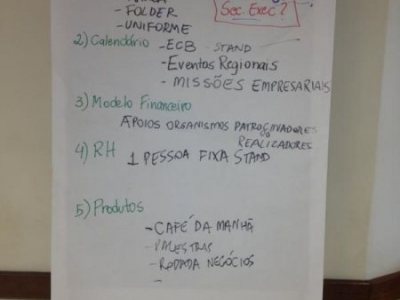 - FOLDER
Sec Exec?
- UNIFORME
2) Calendário - ECB - STAND
- Eventos Regionais
- MISSÕES EMPRESARIAIS
3) Modelo Financeiro
APOIOS ORGANISMOS PATROCINADORES
REALIZADORES
4) RH 1 PESSOA FIXA STAND
5) Produtos
- CAFÉ DA MANHÃ
- PALESTRAS
- RODADA NEGÓCIOS
-